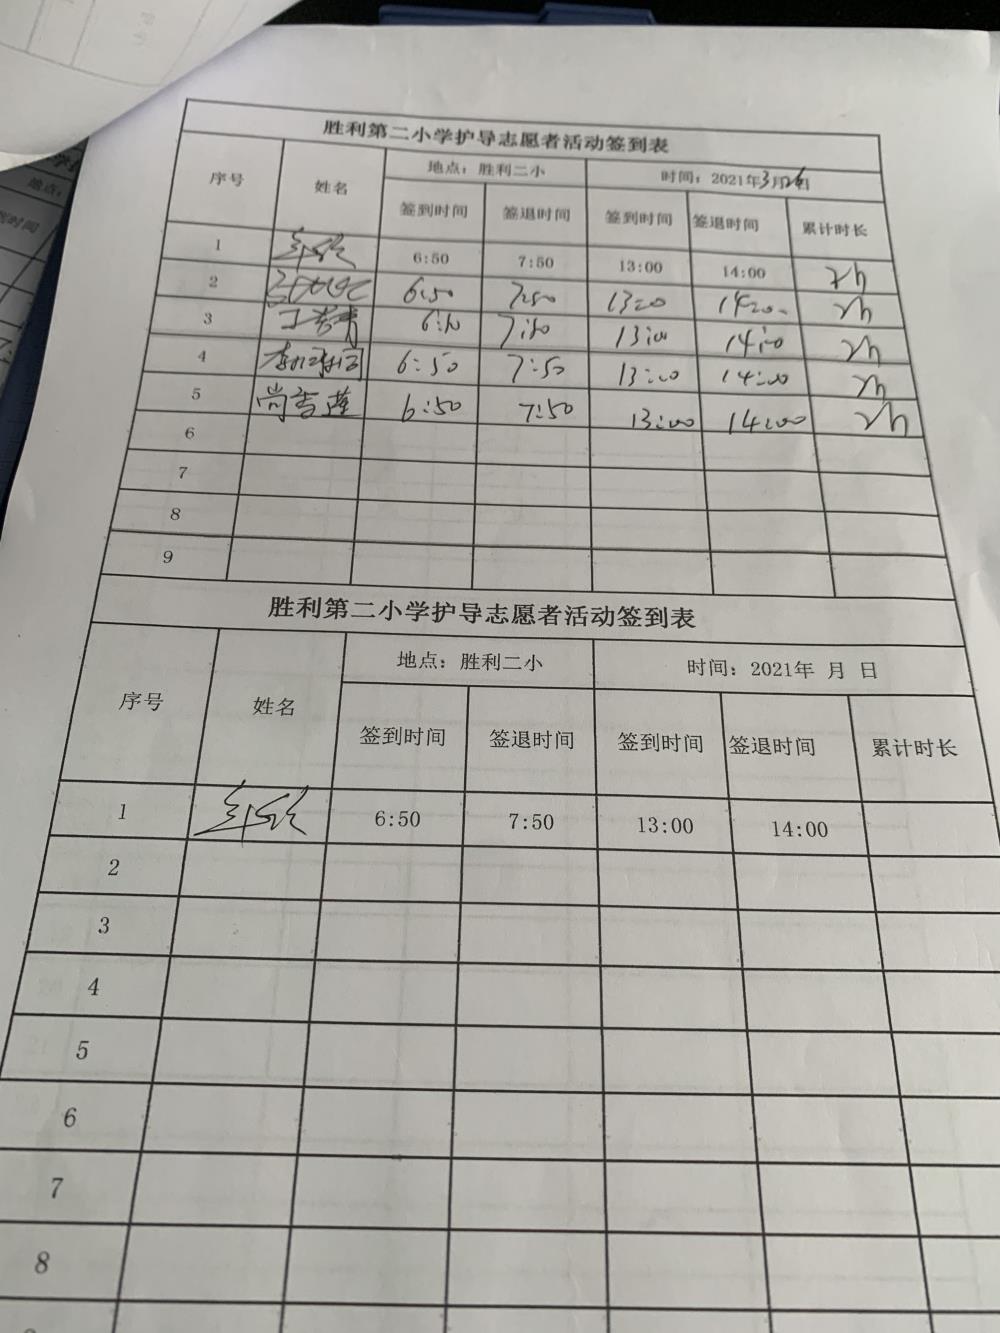 胜利第二小学护导志愿者活动签到表
序号 姓名 地点：胜利二小 时间：2021年3月26日
签到时间 签退时间 签到时间 签退时间 累计时长
1 6:50 7:50 13:00 14:00 2h
2 6:50 7:50 13:00 14:00 2h
3 6:50 7:50 13:00 14:00 2h
4 6:50 7:50 13:00 14:00 2h
5 尚吉莲 6:50 7:50 13:00 14:00 2h
6
7
8
9
胜利第二小学护导志愿者活动签到表
序号 姓名 地点：胜利二小 时间：2021年 月 日
签到时间 签退时间 签到时间 签退时间 累计时长
1 6:50 7:50 13:00 14:00
2
3
4
5
6
7
8